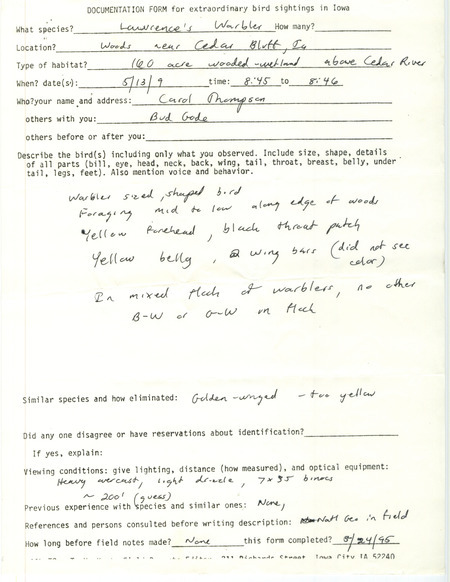 DOCUMENTATION FORM for extraordinary bird sightings in Iowa
What species? Lawrence's Warbler How many?
Location? Woods near Cedar Bluff, Ia
Type of habitat? 160 acre wooded-wetland above Cedar River
When? date(s): 5/13/9 time: 8:45 to 8:46
Who?your name and address: Carol Thompson
others with you: Bud Gode
others before or after you:
Describe the bird(s) including only what you observed. Include size, shape, details
of all parts (bill, eye, head, neck, back, wing, tail, throat, breast, belly, under
tail, legs, feet). Also mention voice and behavior.
Warbler sized, shaped bird
Foraging mid to low along edge of woods
Yellow forehead, black throat patch
Yellow belly, 2 wing bars (did not see
color)
In mixed flock of warblers, no other
B-W or G-W in flock
Similar species and how eliminated: Golden-winged - too yellow
Did any one disagree or have reservations about identification?
If yes, explain:
Viewing conditions: give lighting, distance (how measured), and optical equipment:
Heavy overcast, light drizzle, 7x35 binocs
~ 200' (guess)
Previous experience with species and similar ones: None,
References and persons consulted before writing description: Natl Geo in field
How long before field notes made? None this form completed? 3/24/95
Street, Iowa City IA 52240